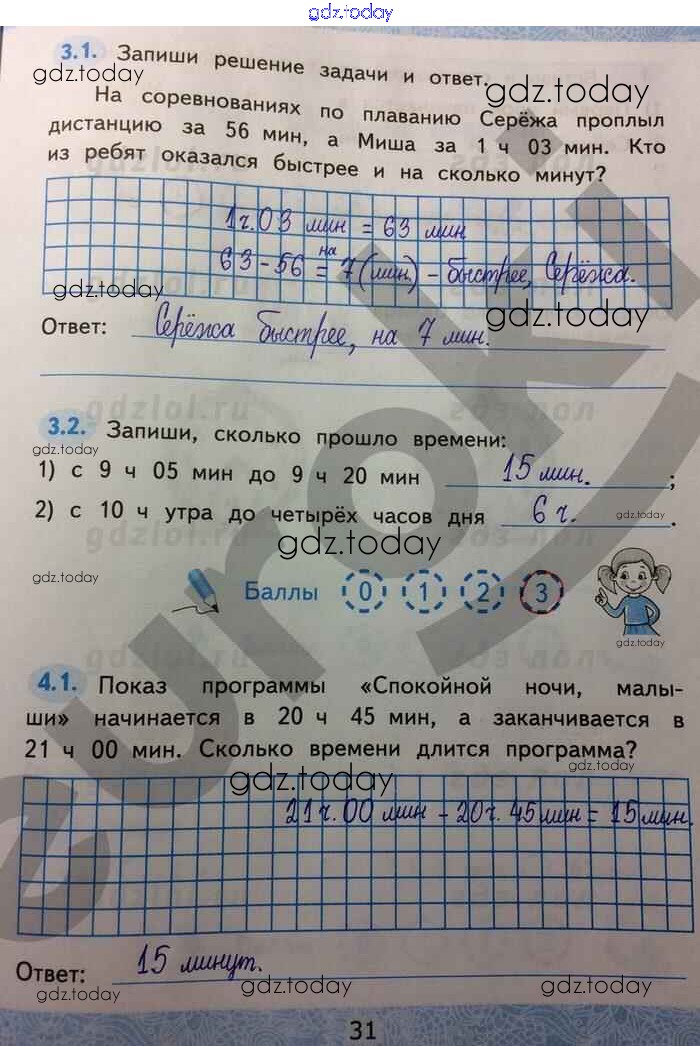 gdz.today
3.1. Запиши решение задачи и ответ.
gdz.today
gdz.today
На соревнованиях по плаванию Серёжа проплыл
дистанцию за 56 мин, а Миша за 1 ч 03 мин. Кто
из ребят оказался быстрее и на сколько минут?
1 ч. 03 мин = 63 мин
63 - 56 = на 7 (мин.) - быстрее, Серёжа.
gdz.today
gdz.today
Ответ: Серёжа быстрее, на 7 мин.
gdzlol.ru
3.2. Запиши, сколько прошло времени:
gdz.today
1) с 9 ч 05 мин до 9 ч 20 мин 15 мин. ;
2) с 10 ч утра до четырёх часов дня 6 ч. .
gdz.today
gdzlol.ru
gdz.today
gdz.today
Баллы 0 1 2 3
4.1. Показ программы «Спокойной ночи, малы-
ши» начинается в 20 ч 45 мин, а заканчивается в
21 ч 00 мин. Сколько времени длится программа?
gdz.today
gdz.today
21 ч. 00 мин - 20 ч. 45 мин = 15 мин.
Ответ: 15 минут.
gdz.today
gdz.today
gdz.today
31
euroki